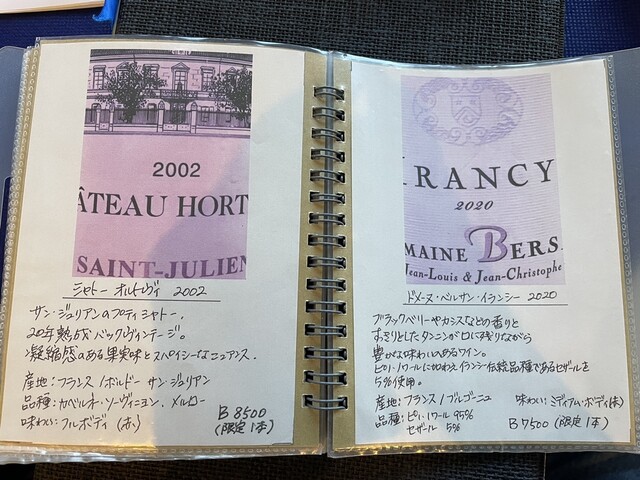 2002
ÂTEAU HORT
SAINT-JULIEN
シャトー オルトヴィ 2002
サン・ジュリアンのプティシャトー.
20年熟成バックヴィンテージ。
凝縮感のある果実味とスパイシーなニュアンス.
産地:フランス/ボルドー サン・ジュリアン
品種:カベルネ・ソーヴィニヨン. メルロー
味わい:フルボディ(赤)
B 8500
(限定1本)
IRANCY
2020
MAINE BERS
Jean-Louis & Jean-Christophe
ドメーヌ・ベルサン・イランシー 2020
ブラックベリーやカシスなどの香りと
すっきりとしたタンニンが口に残りながら
豊かな味わいのあるワイン。
ピノ・ノワールに加えイランシー伝統品種であるセザールを
5%使用。
産地:フランス/ブルゴーニュ 味わい:ミディアム・ボディ(赤)
品種:ピノ・ノワール 95%
セザール 5%
B 7500(限定1本)